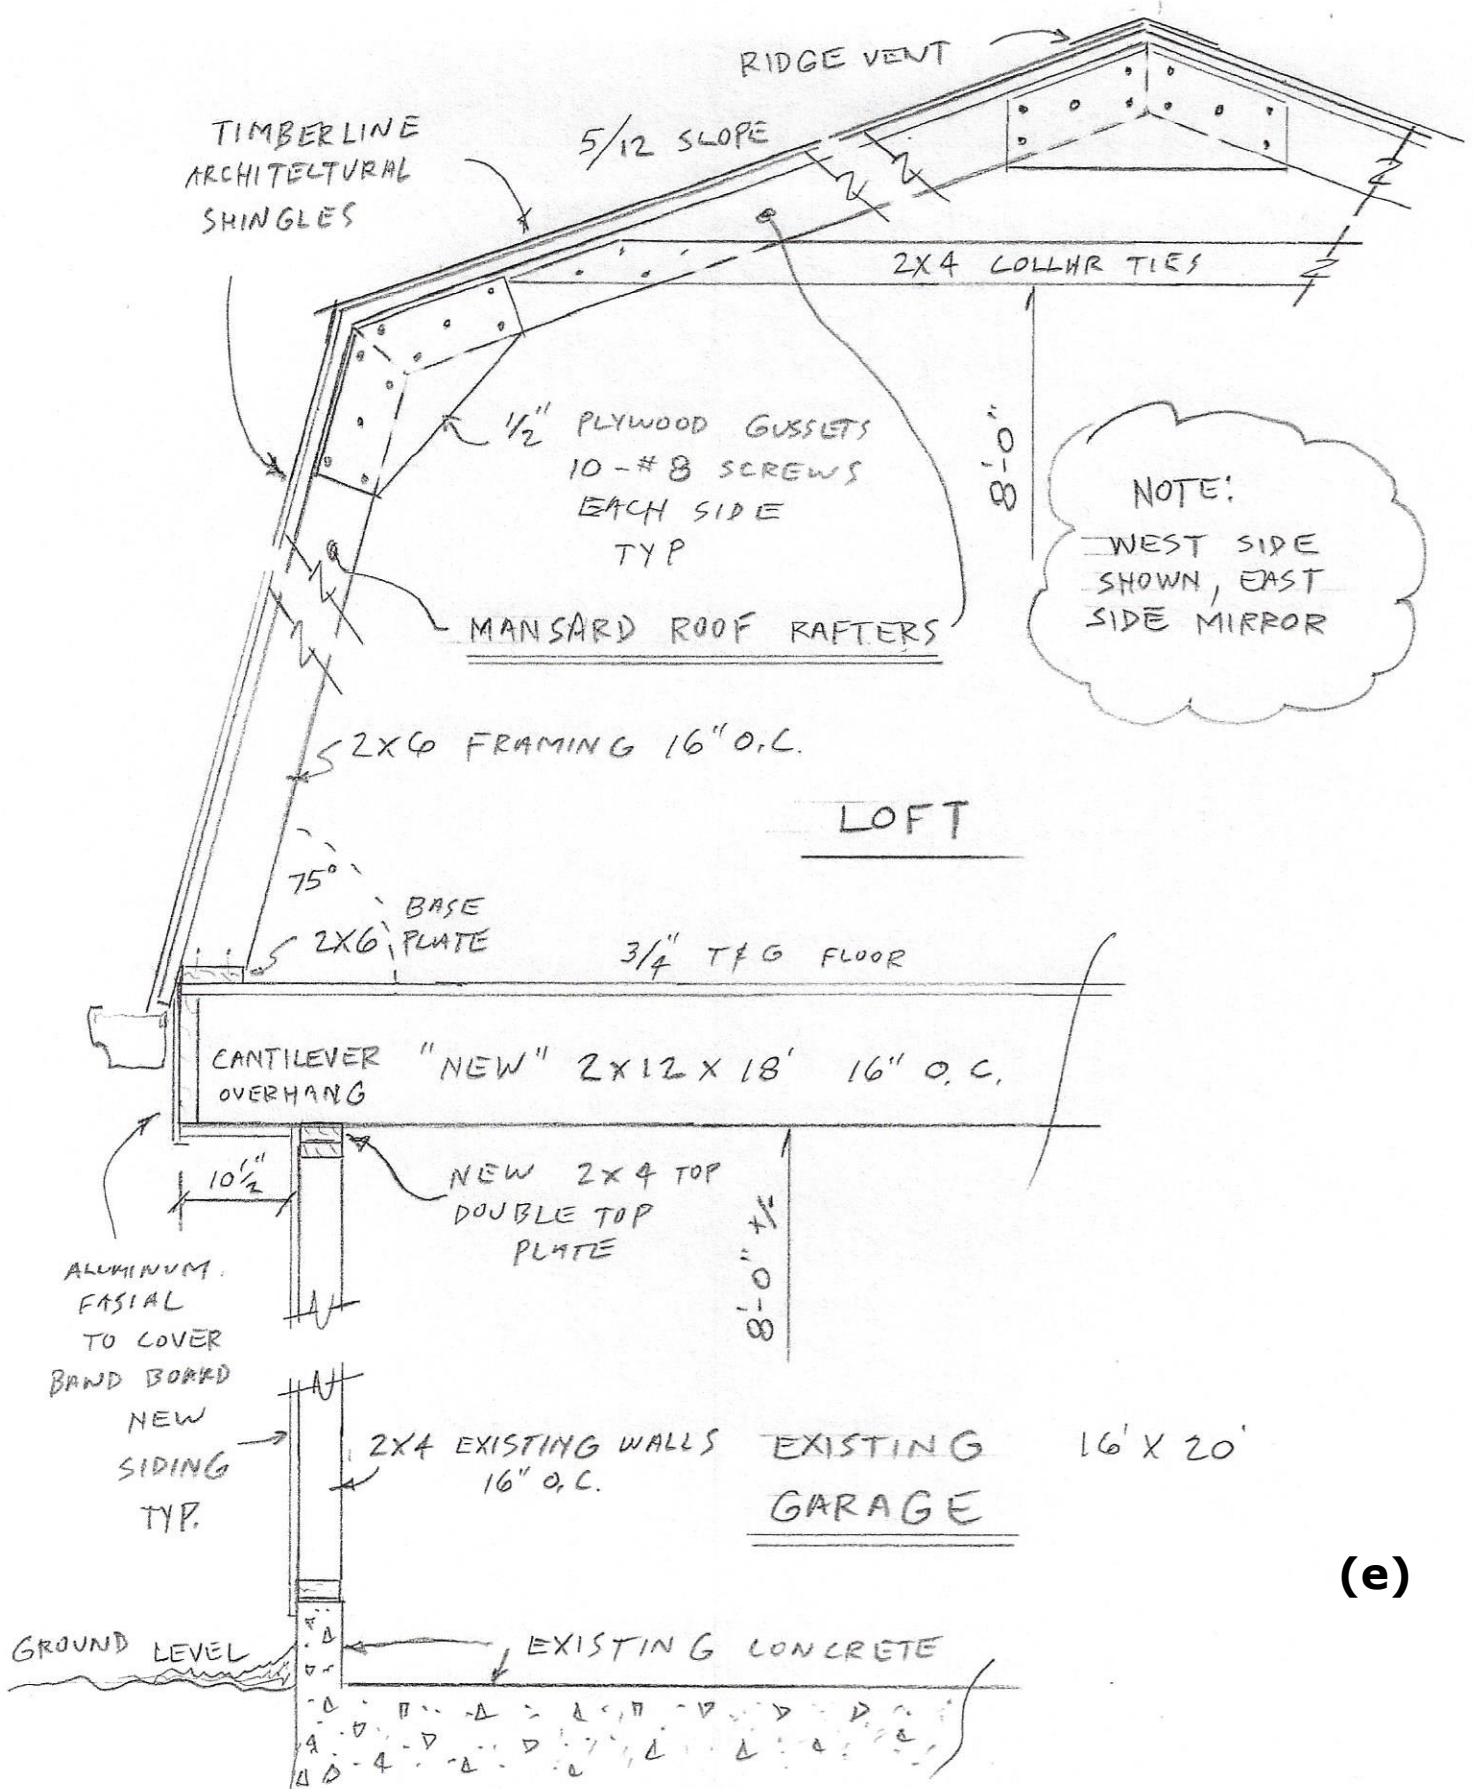 RIDGE VENT
TIMBERLINE
ARCHITECTURAL
SHINGLES
5/12 SLOPE
2X4 COLLAR TIES
1/2" PLYWOOD GUSSETS
10-#8 SCREWS
EACH SIDE
TYP
8'-0"
NOTE:
WEST SIDE
SHOWN, EAST
SIDE MIRROR
MANSARD ROOF RAFTERS
2X6 FRAMING 16" O.C.
LOFT
75°
2X6 BASE
PLATE
3/4" T&G FLOOR
CANTILEVER
OVERHANG
"NEW" 2X12X18' 16" O.C.
10 1/2"
NEW 2X4 TOP
DOUBLE TOP
PLATE
8'-0" +/-
ALUMINUM
FASIAL
TO COVER
BAND BOARD
NEW
SIDING
TYP.
2X4 EXISTING WALLS
16" O.C.
EXISTING
GARAGE
16' X 20'
(e)
GROUND LEVEL
EXISTING CONCRETE